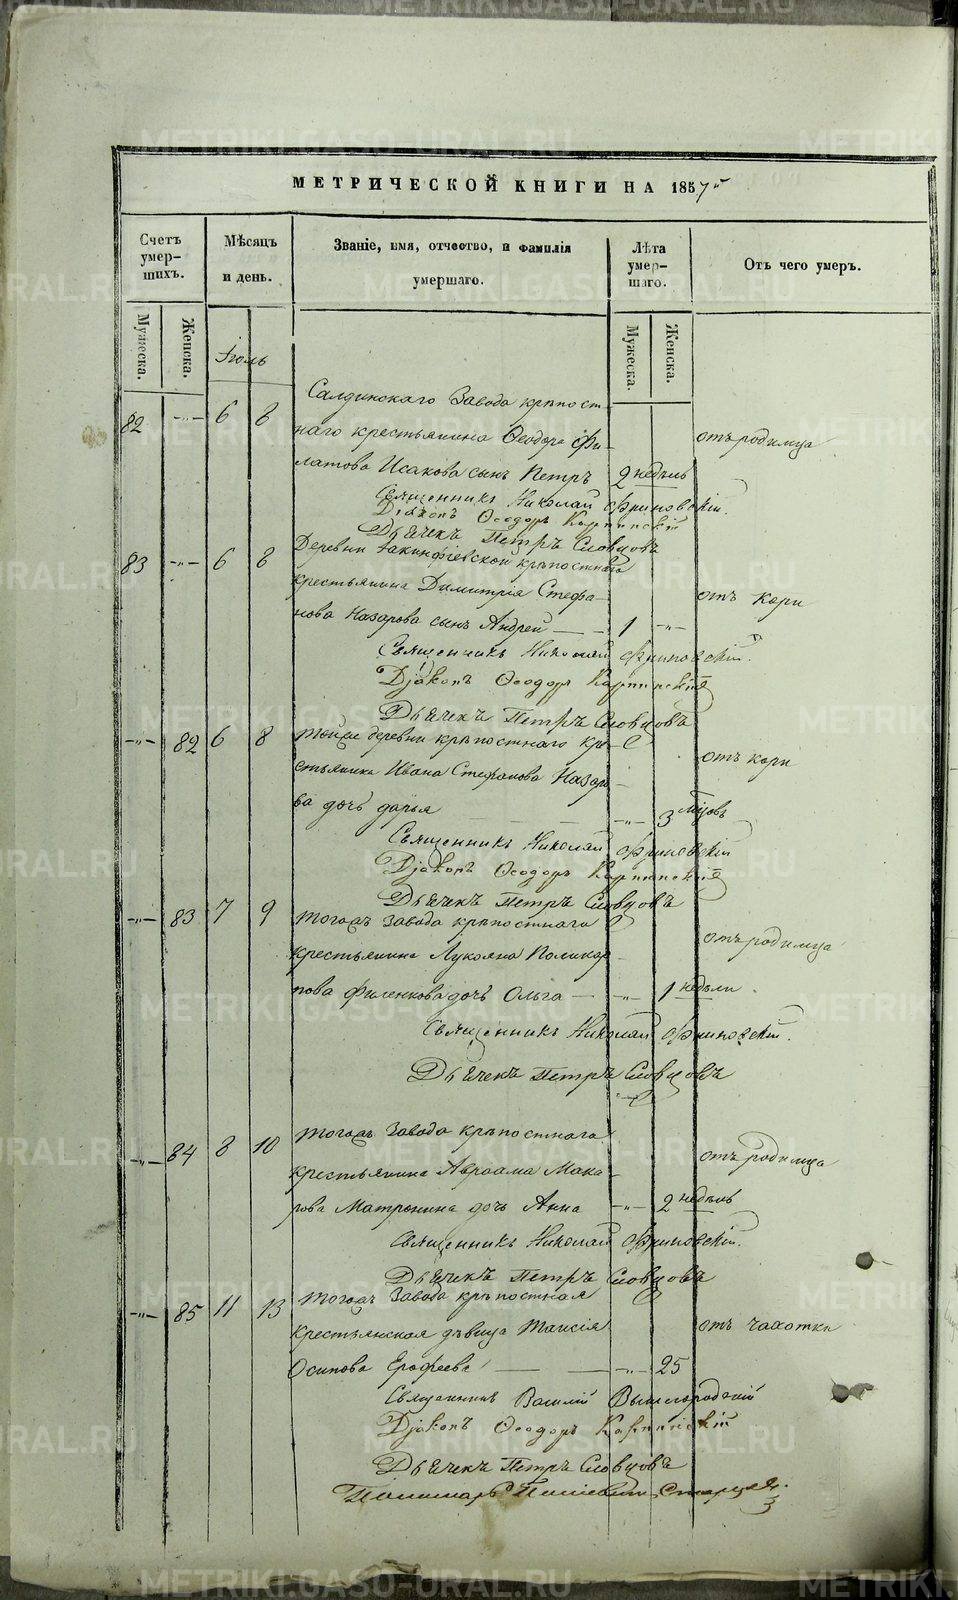 МЕТРИЧЕСКОЙ КНИГИ НА 1857й
Счетъ умер-шихъ.
Мѣсяцъ и день.
Званіе, имя, отчество, и фамилія умершаго.
Лѣта умер-шаго.
Отъ чего умеръ.
Мужеска.
Женска.
Мужеска.
Женска.
Іюль
Салдинскаго Завода крѣпост-
82 -"- 6 8 наго крестьянина Ѳеодора Фи- отъ родимца
латова Исакова сынъ Петръ 2 недѣль
Священникъ Николай Фриновскій.
Діаконъ Ѳеодоръ Карпинскій
Дьячекъ Петръ Словцовъ
83 -"- 6 8 Деревни Акинфіевской крѣпостнаго
крестьянина Димитрія Стефа- отъ кори
нова Назарова сынъ Андрей 1 -"-
Священникъ Николай Фриновскій.
Діаконъ Ѳеодоръ Карпинскій
Дьячекъ Петръ Словцовъ
-"- 82 6 8 Тойже деревни крѣпостнаго кре-
стьянина Ивана Стефанова Назаро- отъ кори
ва дочь Дарья -"- 3 мцовъ
Священникъ Николай Фриновскій
Діаконъ Ѳеодоръ Карпинскій
Дьячекъ Петръ Словцовъ
-"- 83 7 9 Тогожъ Завода крѣпостнаго
крестьянина Лукояна Поликар- отъ родимца
пова Филенкова дочь Ольга -"- 1 недѣли
Священникъ Николай Фриновскій.
Дьячекъ Петръ Словцовъ
-"- 84 8 10 Тогожъ Завода крѣпостнаго
крестьянина Авраама Мака- отъ родимца
рова Матронина дочь Анна -"- 2 недѣль
Священникъ Николай Фриновскій.
Дьячекъ Петръ Словцовъ
-"- 85 11 13 Тогожъ Завода крѣпостная
крестьянская дѣвица Таисія отъ чахотки
Осипова Ерофеева -"- 25
Священникъ Василій Вышегородскій
Діаконъ Ѳеодоръ Карпинскій
Дьячекъ Петръ Словцовъ
Пономарь
METRIKI.GASO-URAL.RU